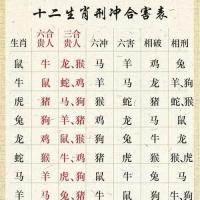 十二生肖刑冲合害表
生肖 六合贵人 三合贵人 六冲 六害 相破 相刑
鼠 牛 龙、猴 马 羊 鸡 兔
牛 鼠 蛇、鸡 羊 马 龙 羊、狗
虎 猪 马、狗 猴 蛇 猪
兔 狗 羊、猪 鸡 龙 马 鼠
龙 鸡 鼠、猴 狗 兔 牛 龙
蛇 猴 牛、鸡 猪 虎 猴
马 羊 虎、狗 鼠 牛 兔 马
羊 马 兔、猪 牛 鼠 狗